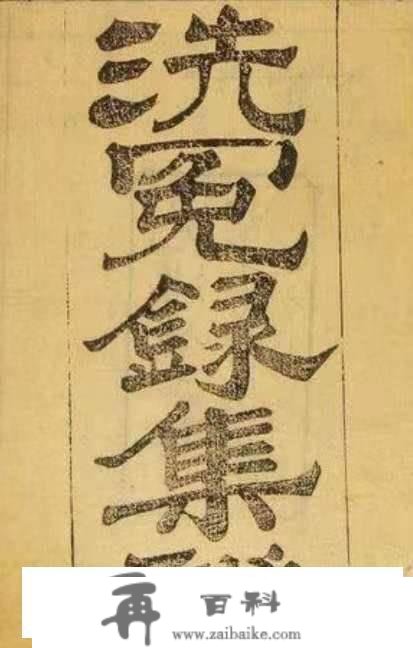 洗冤録集
再 百科
www.zaibaike.com